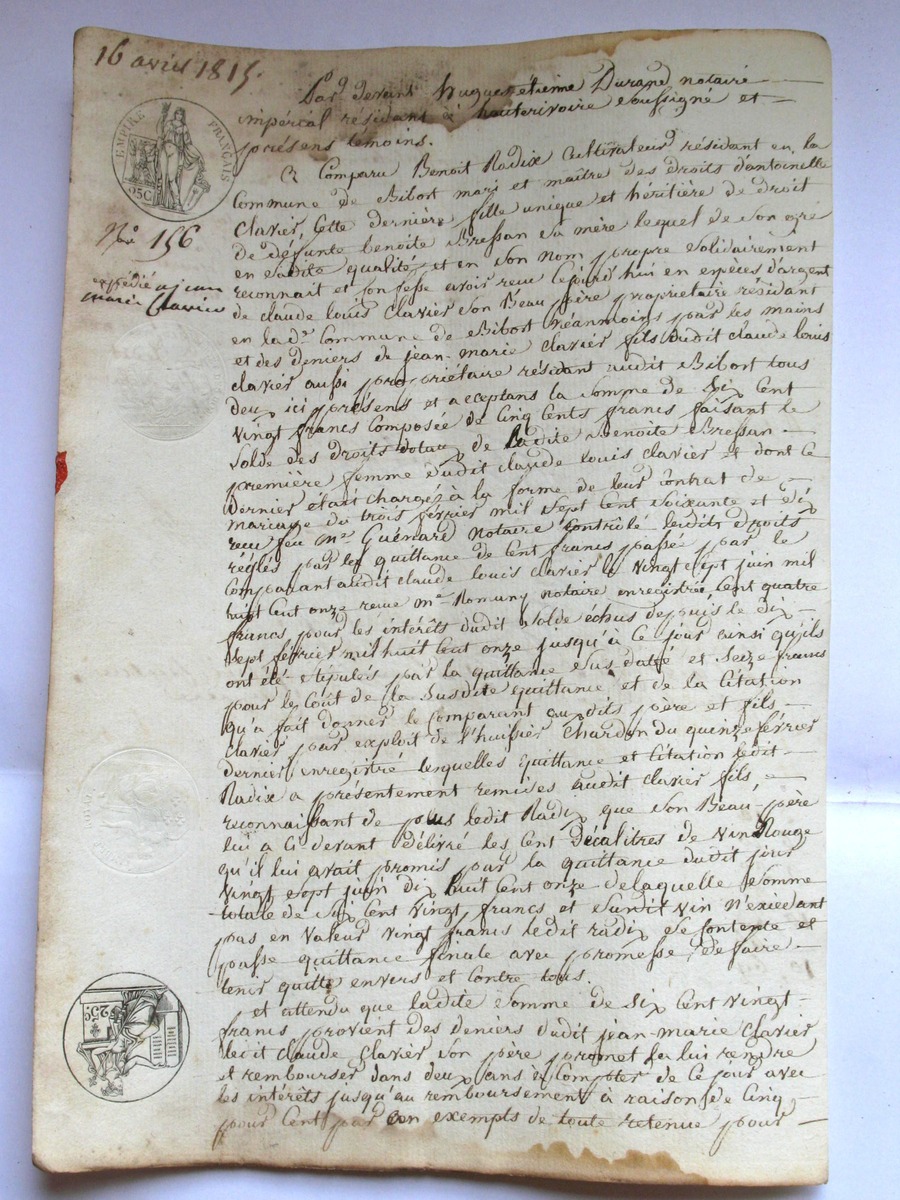 16 avril 1815.
Par devant hugues étienne Durand notaire
impérial résidant à hauterivoire soussigné et
présens témoins.
EMPIRE FRANÇAIS
25C
A Comparu Benoit Radix Cultivateur résidant en la
Commune de Bibost mari et maître des droits d'antoinette
Clavier, Cette dernière fille unique et héritière de droit
de défunte benoite Bressan sa mère lequel de son gré
N.º 156
en sadite qualité et en son nom propre solidairement
expédié a jean
marie Clavier
reconnait et Confesse avoir reçu Cejourd'hui en espèces d'argent
de claude louis Clavier son Beau père propriétaire résidant
en lad.e Commune de Bibost néanmoins par les mains
et des deniers de jean-marie clavier fils dudit claude louis
clavier aussi propriétaire résidant audit Bibost tous
deux ici présens et acceptans la somme de Six Cent
vingt francs composée de Cinq Cents francs faisant le
Solde des droits dotaux de Ladite Benoite Bressan
première femme dudit claude louis clavier et dont ce
dernier était chargé à la forme de leur contrat de
mariage du trois février mil sept Cent soixante et dix
reçu feu M.e Guénard notaire Contrôlé lesdits droits
réglés par la quittance de Cent francs passée par le
Comparant audit claude louis clavier le vingt sept juin mil
huit Cent onze reçue m.e Romany notaire enregistrée, Cent quatre
francs pour les intérêts dudit solde échus depuis le dix
sept février mil huit Cent onze jusqu'à ce jour ainsi qu'ils
ont été stipulés par la quittance sus datée et Seize francs
pour le Coût de la susdite quittance et de la Citation
qu'a fait donner le Comparant auxdits père et fils
clavier par exploit de l'huissier Chardon du quinze février
dernier enregistré lesquelles quittance et Citation ledit
Radix a présentement remises audit clavier fils
reconnaissant de plus ledit Radix que son Beau-père
lui a Ci devant délivré les Cent Décalitres de vin Rouge
qu'il lui avait promis par la quittance dudit jour
vingt sept juin dix huit Cent onze de laquelle somme
totale de six Cent vingt francs et Susdit vin n'excédant
pas en valeur vingt francs ledit radix se Contente et
passe quittance finale avec promesse de faire
tenir quitte envers et Contre tous.
et attendu que ladite somme de Six Cent vingt
25C
francs provient des deniers dudit jean-marie clavier
ledit Claude Clavier son père promet de lui rendre
et rembourser dans deux ans à Compter de ce jour avec
les intérêts jusqu'au remboursement à raison de Cinq
pour Cent par an exempts de toute retenue pour